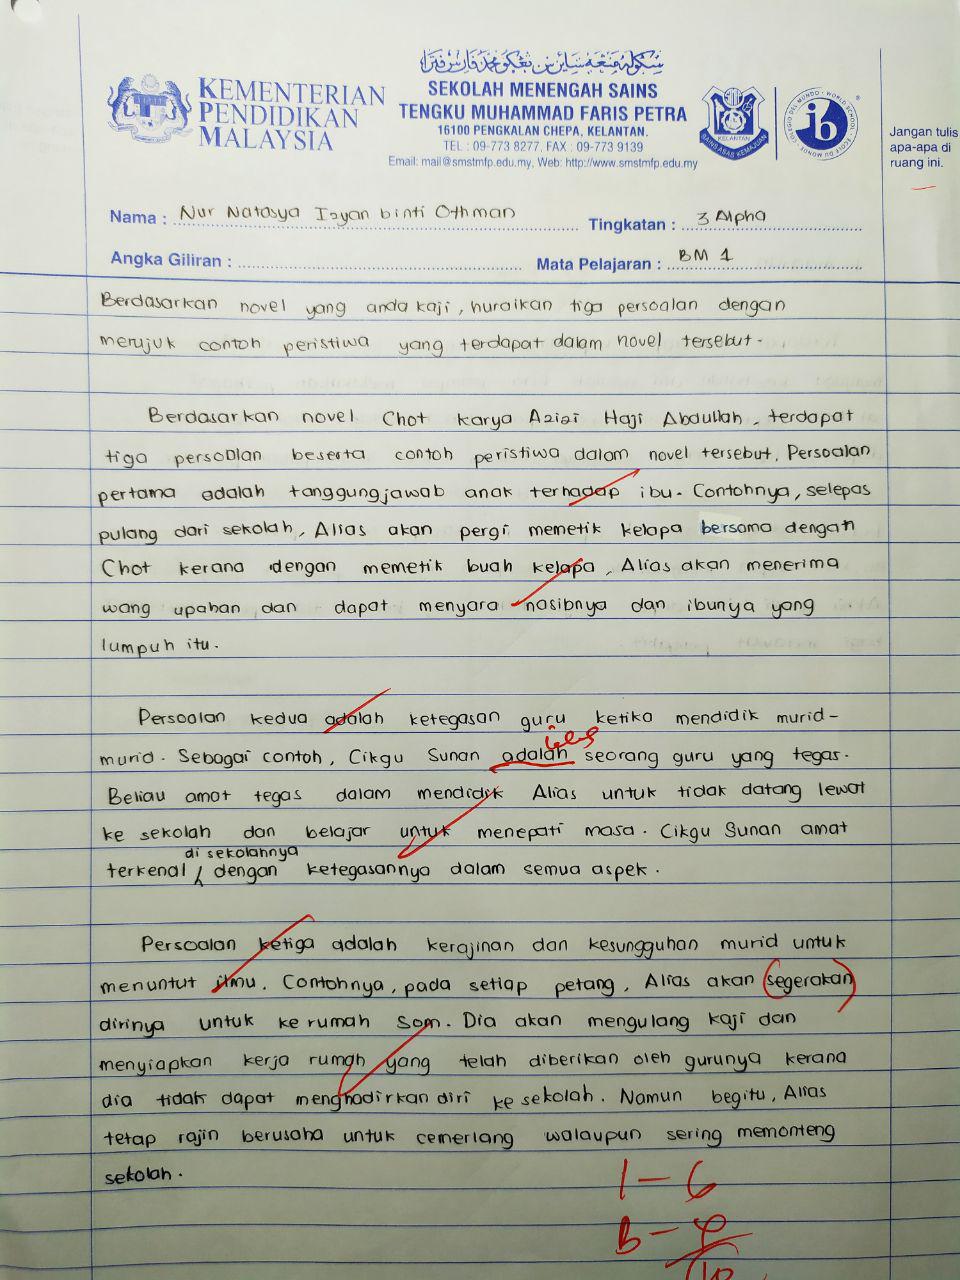 KEMENTERIAN
PENDIDIKAN
MALAYSIA
SEKOLAH MENENGAH SAINS
TENGKU MUHAMMAD FARIS PETRA
16100 PENGKALAN CHEPA, KELANTAN.
TEL : 09-773 8277, FAX : 09-773 9139
Email: mail@smstmfp.edu.my, Web: http://www.smstmfp.edu.my
KELANTAN
ib
Jangan tulis
apa-apa di
ruang ini.
Nama : Nur Natasya Izyan binti Othman Tingkatan : 3 Alpha
Angka Giliran : Mata Pelajaran : BM 1
Berdasarkan novel yang anda kaji, huraikan tiga persoalan dengan
merujuk contoh peristiwa yang terdapat dalam novel tersebut.
Berdasarkan novel Chot karya Azizi Haji Abdullah, terdapat
tiga persoalan beserta contoh peristiwa dalam novel tersebut. Persoalan
pertama adalah tanggungjawab anak terhadap ibu. Contohnya, selepas
pulang dari sekolah, Alias akan pergi memetik kelapa bersama dengan
Chot kerana dengan memetik buah kelapa, Alias akan menerima
wang upahan dan dapat menyara nasibnya dan ibunya yang
lumpuh itu.
Persoalan kedua adalah ketegasan guru ketika mendidik murid-
murid. Sebagai contoh, Cikgu Sunan adalah seorang guru yang tegas.
Beliau amat tegas dalam mendidik Alias untuk tidak datang lewat
ke sekolah dan belajar untuk menepati masa. Cikgu Sunan amat
di sekolahnya
terkenal dengan ketegasannya dalam semua aspek.
Persoalan ketiga adalah kerajinan dan kesungguhan murid untuk
menuntut ilmu. Contohnya, pada setiap petang, Alias akan segerakan
dirinya untuk ke rumah Som. Dia akan mengulang kaji dan
menyiapkan kerja rumah yang telah diberikan oleh gurunya kerana
dia tidak dapat menghadirkan diri ke sekolah. Namun begitu, Alias
tetap rajin berusaha untuk cemerlang walaupun sering memonteng
sekolah.
1 - 6
B - 4
10